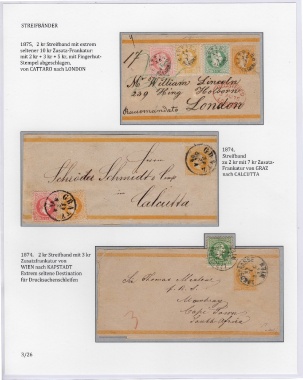 STREIFBÄNDER
1875, 2 kr Streifband mit extrem
seltener 10 kr Zusatz-Frankatur:
mit 2 kr + 3 kr + 5 kr, mit Fingerhut-
Stempel abgeschlagen,
von CATTARO nach LONDON
17
Mr William Lincoln
239 High Holborn
London
1874,
Streifband
zu 2 kr mit 7 kr Zusatz-
Frankatur von GRAZ
nach CALCUTTA
Herren
Schröder Schmidt & Comp
Calcutta
GRAZ
1874, 2 kr Streifband mit 3 kr
Zusatzfrankatur von
WIEN nach KAPSTADT
Extrem seltene Destination
für Drucksachenschleifen
Sir Thomas
Cape Town
South Africa
3
3/26